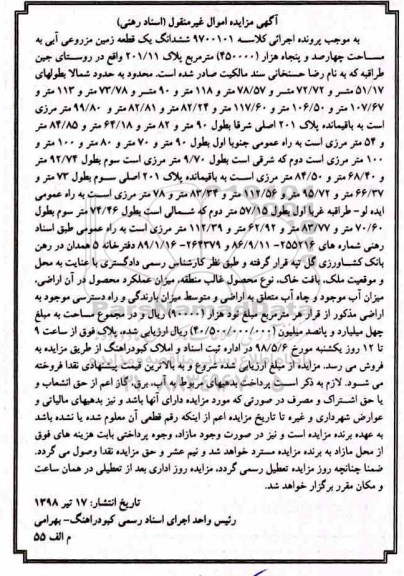 آگهی مزایده اموال غیرمنقول (اسناد رهنی)
به موجب پرونده اجرائی کلاسه ۹۷۰۰۱۰۱ ششدانگ یک قطعه زمین مزروعی آبی به
مساحت چهارصد و پنجاه هزار (۴۵۰۰۰۰) مترمربع پلاک ۲۰۱/۱۱ واقع در روستای جین
طراقیه که به نام رضا حسنخانی سند مالکیت صادر شده است. محدود به حدود شمالا بطولهای
۵۱/۱۷ متر و ۷۲/۷۲ متر و ۷۸/۵۷ متر و ۱۱۸ متر و ۹۰ متر و ۷۳/۷۸ متر و ۱۱۳ متر و
۱۰۷/۶۷ متر و ۱۰۶/۵۰ متر و ۱۱۷/۶۰ متر و ۸۲/۲۴ متر و ۸۲/۸۱ متر و ۹۹/۸۰ متر مرزی
است به باقیمانده پلاک ۲۰۱ اصلی شرقا بطول ۹۰ متر و ۸۲ متر و ۶۴/۱۸ متر و ۸۴/۸۵ متر
و ۵۴ متر مرزی است به راه عمومی جنوبا اول بطول ۹۰ متر و ۷۰ متر و ۸۰ متر و ۱۰۰ متر و
۱۰۰ متر مرزی است دوم که شرقی است بطول ۹/۷۰ متر مرزی است سوم بطول ۹۲/۷۴ متر
و ۶۸/۴۰ متر و ۸۴/۵۰ متر مرزی است به باقیمانده پلاک ۲۰۱ اصلی سوم بطول ۷۳ متر و
۶۶/۳۷ متر و ۹۵/۷۲ متر و ۱۱۲/۵۶ متر و ۸۳/۳۴ متر و ۷۸ متر مرزی است به راه عمومی
ایده لو- طراقیه غربا اول بطول ۵۷/۱۵ متر دوم که شمالی است بطول ۷۴/۴۶ متر سوم بطول
۷۰/۶۰ متر و ۸۳/۷۷ متر و ۶۲/۹۲ متر و ۱۱۲/۳۹ متر مرزی است به راه عمومی طبق اسناد
رهنی شماره های ۲۵۵۲۱۶- ۸۶/۹/۱۱ و ۲۶۴۳۷۹- ۸۹/۱/۱۶ دفترخانه ۵ همدان در رهن
بانک کشاورزی گل تپه قرار گرفته و طبق نظر کارشناس رسمی دادگستری با عنایت به محل
و موقعیت ملک، بافت خاک، نوع محصول غالب منطقه، میزان عملکرد محصول در آن اراضی،
میزان آب موجود و چاه آب متعلق به اراضی و متوسط میزان بارندگی و راه دسترسی موجود به
اراضی مذکور از قرار هر مترمربع مبلغ نود هزار (۹۰۰۰۰) ریال و در مجموع مساحت به مبلغ
چهل میلیارد و پانصد میلیون (۴۰/۵۰۰/۰۰۰/۰۰۰) ریال ارزیابی شده، پلاک فوق از ساعت ۹
تا ۱۲ روز یکشنبه مورخ ۹۸/۵/۶ در اداره ثبت اسناد و املاک کبودراهنگ از طریق مزایده به
فروش می رسد. مزایده از مبلغ ارزیابی شده شروع و به بالاترین قیمت پیشنهادی نقدا فروخته
می شود. لازم به ذکر است پرداخت بدهیهای مربوط به آب، برق، گاز اعم از حق انشعاب و
یا حق اشتراک و مصرف در صورتی که مورد مزایده دارای آنها باشد و نیز بدهیهای مالیاتی و
عوارض شهرداری و غیره تا تاریخ مزایده اعم از اینکه رقم قطعی آن معلوم شده یا نشده باشد
به عهده برنده مزایده است و نیز در صورت وجود مازاد، وجوه پرداختی بابت هزینه های فوق
از محل مازاد به برنده مزایده مسترد خواهد شد و نیم عشر و حق مزایده نقدا وصول می گردد.
ضمنا چنانچه روز مزایده تعطیل رسمی گردد، مزایده روز اداری بعد از تعطیلی در همان ساعت
و مکان مقرر برگزار خواهد شد.
تاریخ انتشار: ۱۷ تیر ۱۳۹۸
رئیس واحد اجرای اسناد رسمی کبودراهنگ- بهرامی
م الف ۵۵